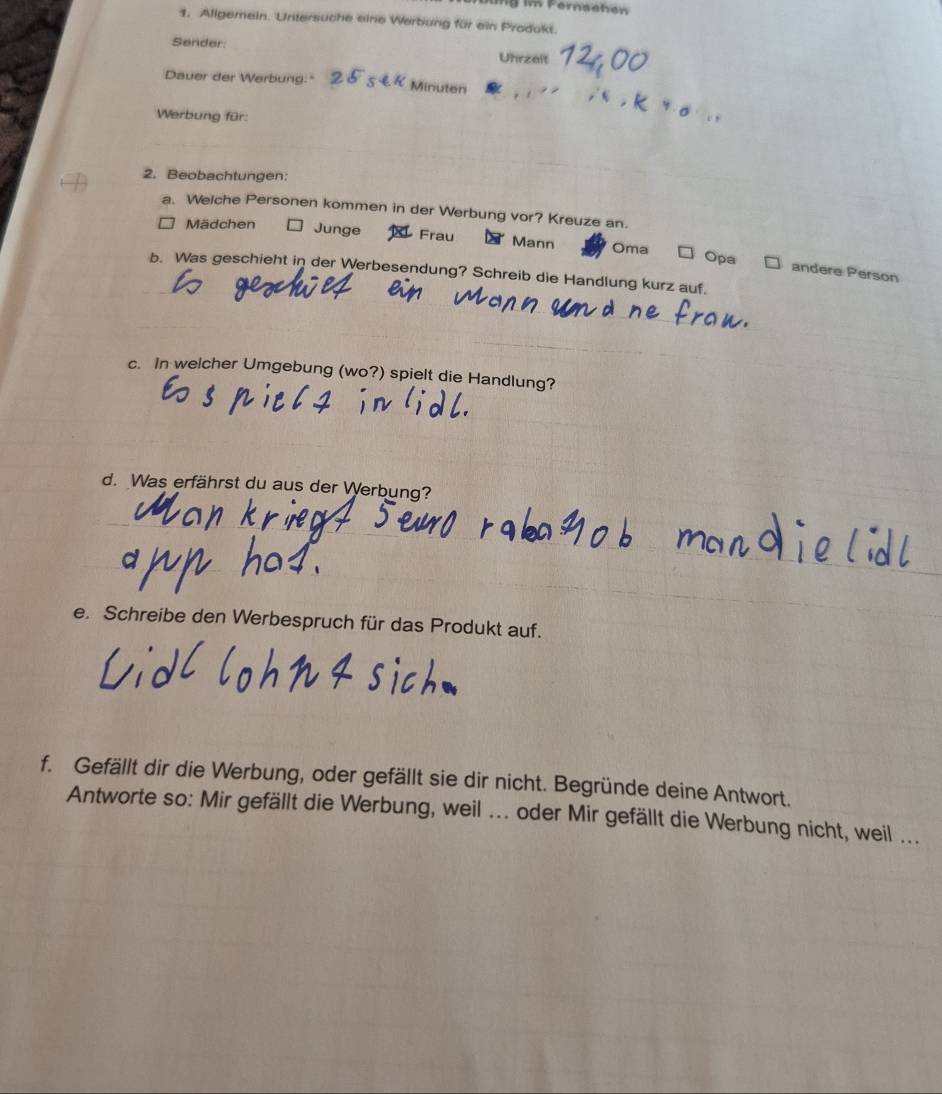 im Fernsehen
1. Allgemein. Untersuche eine Werbung für ein Produkt.
Sender:
Uhrzeit 12,00
Dauer der Werbung: 25 sek Minuten
Werbung für:
2. Beobachtungen:
a. Welche Personen kommen in der Werbung vor? Kreuze an.
☐ Mädchen ☐ Junge ☒ Frau ☒ Mann Oma ☐ Opa ☐ andere Person
b. Was geschieht in der Werbesendung? Schreib die Handlung kurz auf.
Es geschiet ein Mann und ne fraw.
c. In welcher Umgebung (wo?) spielt die Handlung?
Es spielt in lidl.
d. Was erfährst du aus der Werbung?
Man kriegt 5 euro rabatt ob man die lidl
app hat.
e. Schreibe den Werbespruch für das Produkt auf.
Lidl lohnt sich.
f. Gefällt dir die Werbung, oder gefällt sie dir nicht. Begründe deine Antwort.
Antworte so: Mir gefällt die Werbung, weil ... oder Mir gefällt die Werbung nicht, weil ...